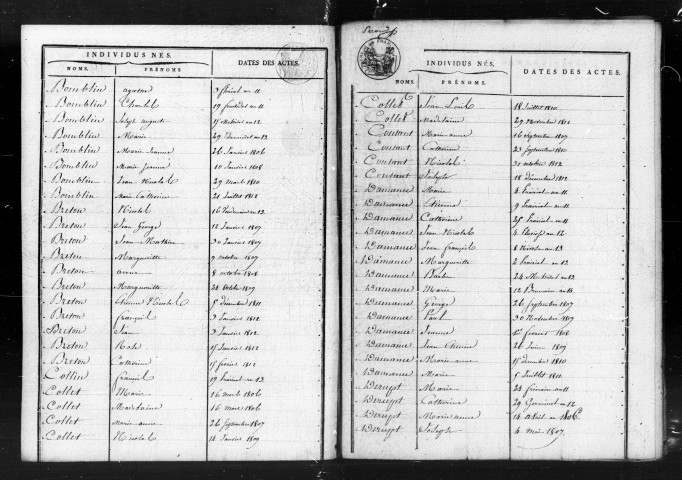 INDIVIDUS NÉS.
NOMS. PRÉNOMS DATES DES ACTES.
Bomblin 3 floréal an 11
Bomblin 19 fructidor an 11
Bomblin Joseph auguste an 12
Bomblin Marie 29 an 13
Bomblin Marie Jeanne 26 Janvier 1806
Bomblin Marie Jeanne 10 Janvier 1808
Bomblin Jean Nicolas 29 mars 1810
Bomblin Marie Catherine 21 Juillet 1812
Breton Nicolas 16 Vendémiaire an 12
Breton Jean George 12 Janvier 1807
Breton Jean Mathieu 30 Janvier 1807
Breton Marguerite 9 octobre 1807
Breton anne 8 octobre 1808
Breton Marguerite 24 octobre 1809
Breton Etienne Nicolas 5 décembre 1811
Breton françois 3 Janvier 1812
Breton Jean 3 Janvier 1812
Breton Rose 15 Janvier 1812
Breton Catherine 15 février 1812
Collin françois 19 an 13
Collet Marie 16 mars 1806
Collet Madelaine 16 mars 1806
Collet Marie anne 26 Septembre 1807
Collet Nicolas 14 Janvier 1809
INDIVIDUS NÉS,
NOMS. PRÉNOMS. DATES DES ACTES.
Collet Jean Louis 18 Juillet 1810
Collet Madelaine 29 Novembre 1812
Contant Marie anne 16 Septembre 1807
Contant Catherine 23 Septembre 1810
Contant Nicolas 31 octobre 1812
Contant Joseph 18 décembre 1812
Damance Marie 4 an 11
Damance Etienne 9 an 11
Damance Catherine 25 an 11
Damance Jean Nicolas 4 an 12
Damance Jean françois 8 an 13
Damance Marguerite 2 an 13
Damance Barbe 24 Messidor an 13
Damance Marie 12 Brumaire an 14
Damance George 26 Septembre 1807
Damance Paul 30 Novembre 1807
Damance Jeanne 1er fevrier 1808
Damance Jean Etienne 26 Juin 1809
Damance Marie anne 15 decembre 1810
Damance Marie 5 Juillet 1811
Derupt Marie 24 frimaire an 11
Derupt Catherine 29 Germinal an 12
Derupt Marie anne 14 avril 1806
Derupt Joseph 4 mai 1807